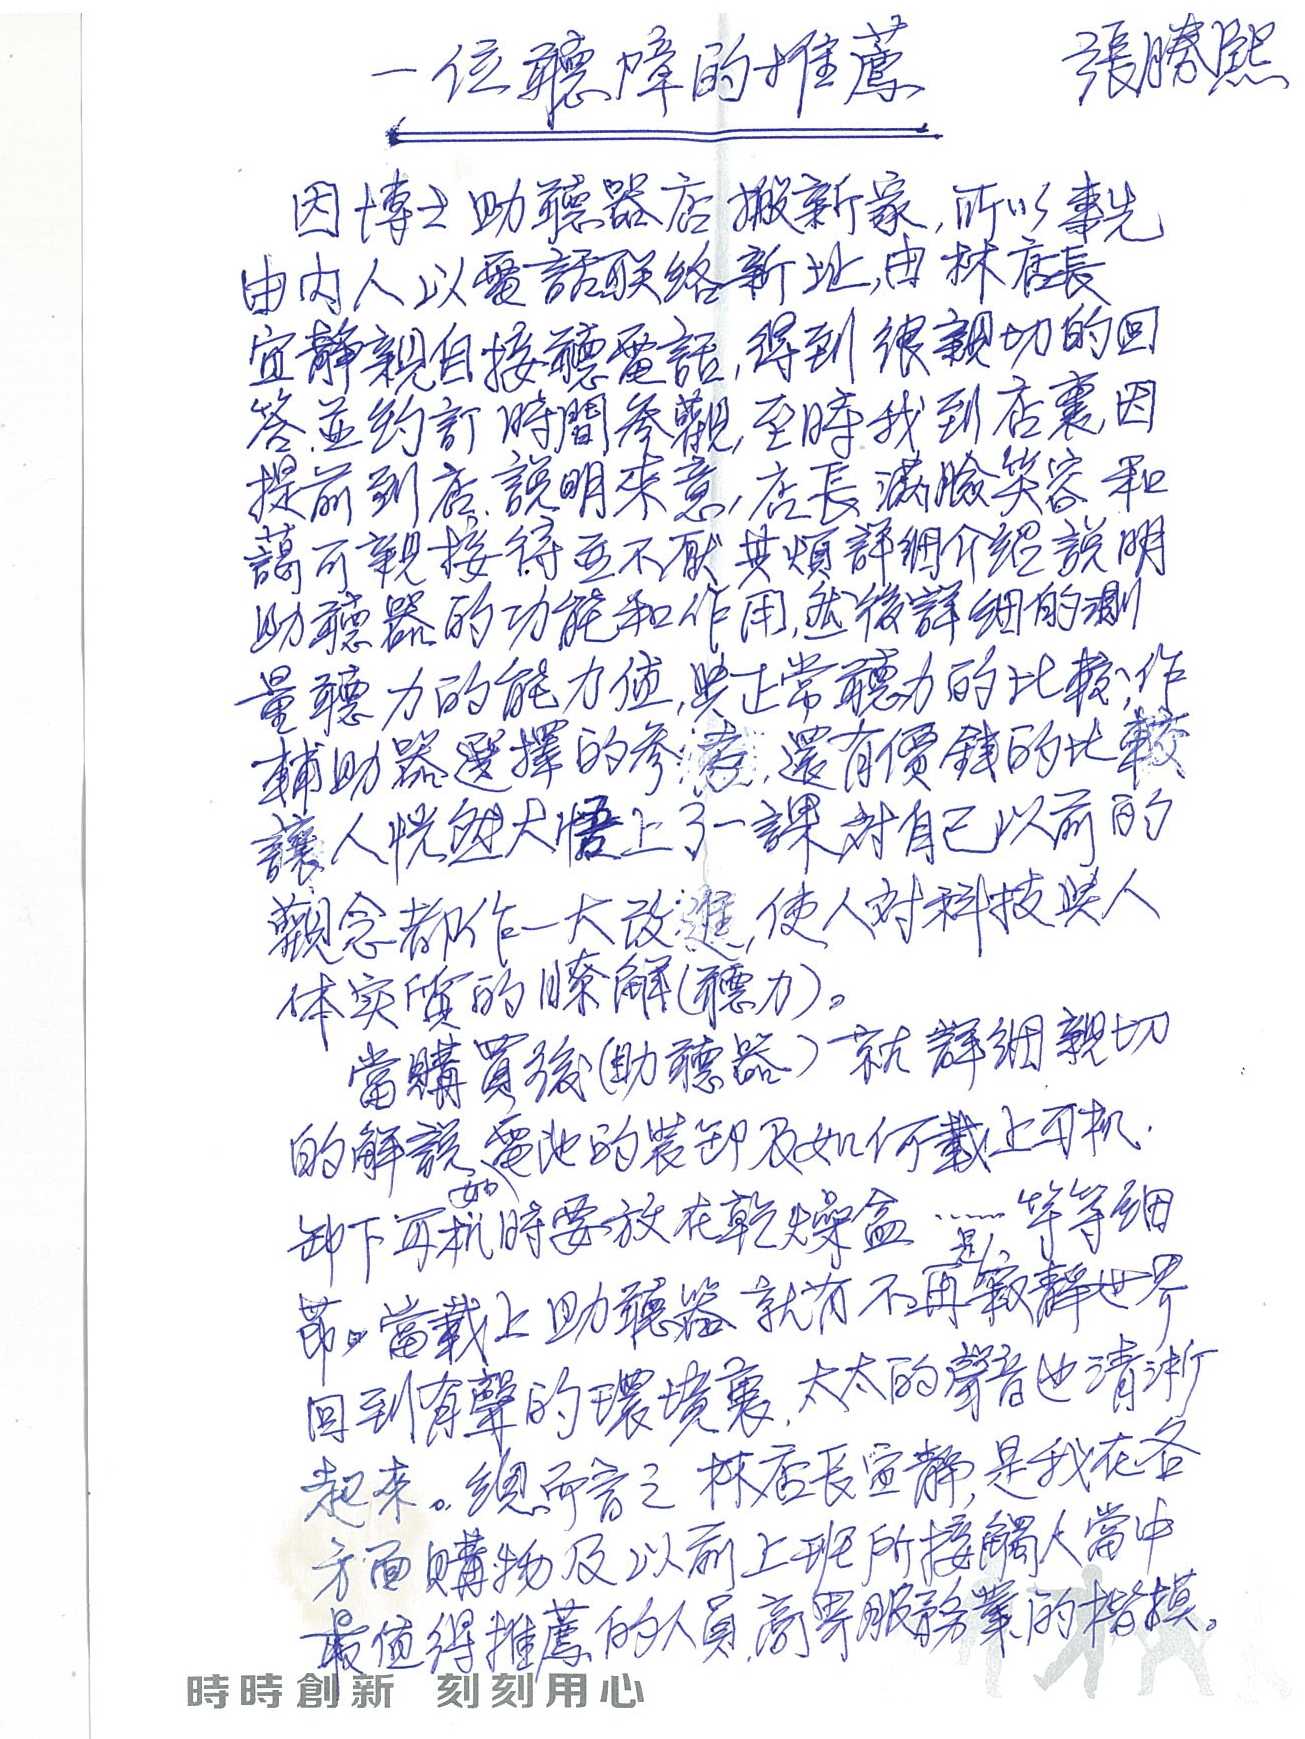 一位聽障的推薦 張勝熙
因博士助聽器店搬新家,所以事先
由內人以電話联絡新址,由林店長
宜靜親自接聽電話,得到很親切的回
答,並約訂時間參觀,至時我到店裏因
提前到店,說明來意,店長滿臉笑容和
藹可親接待並不厭其煩詳細介紹說明
助聽器的功能和作用,然後詳細的測
量聽力的能力值,與正常聽力的比較,作
輔助器選擇的參考,還有價錢的比較
讓人恍然大悟上了一課,対自己以前的
觀念都作一大改進,使人対科技與人
体实質的瞭解(聽力)。
當購買後(助聽器)就詳細親切
的解說,電池的裝卸及如何載上耳机.
卸下耳机(如)時要放在乾燥盒……等等細
節。當載上助聽器就有不再是寂靜世界
回到有聲的環境裏,太太的聲音也清淅
起來。總而言之林店長宜靜,是我在各
方面購物及以前上班所接觸人當中
最值得推薦的人員,商界服務業的楷摸。
時時創新 刻刻用心